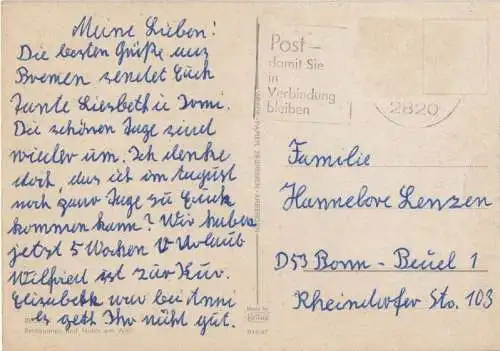 Meine Lieben!
Die besten Grüße aus
Bremen sendet Euch
Tante Liesbeth u. Tomi.
Die schönen Tage sind
wieder um. Ich denke
doch, das ich im August
noch paar Tage zu Euch
kommen kann? Wir haben
jetzt 5 Wochen Urlaub
Wilfried ist zur Kur.
Elisabeth war bei Anni
es geth Ihr nicht gut.
Post –
damit Sie
in
Verbindung
bleiben
2820
Familie
Hannelore Lenzen
D53 Bonn - Beuel 1
Rheindorfer Sto. 103